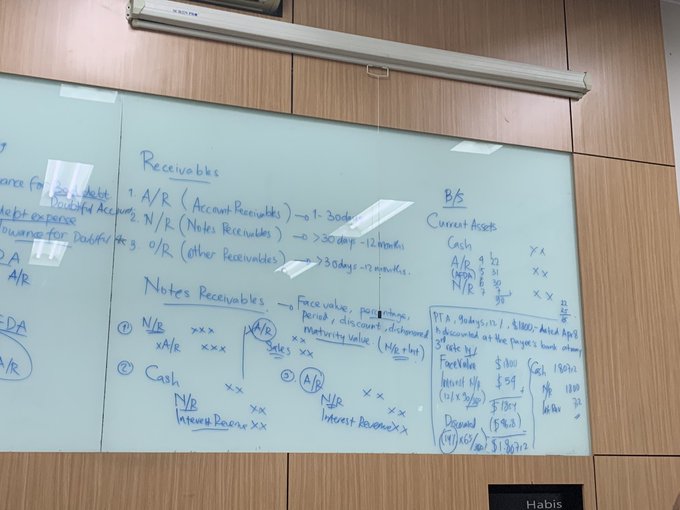 ance for Bad debt
Doubtful Account
debt expense
lowance for Doubtful
DA
A/R
EDA
A/R
Receivables
1. A/R (Account Receivables) → 1 - 30 days
2. N/R (Notes Receivables) → >30 days - 12 months
3. O/R (other Receivables) → >30 days - 12 months.
Notes Receivables → Face value, percentage,
period, discount, dishonored
maturity value (N/R + Int)
① N/R xxx
xA/R xxx
A/R xx
Sales xx
② Cash xx
N/R xx
Interest Revenue xx
③ A/R xx
N/R xx
Interest Revenue xx
B/S
Current Assets
Cash xx
A/R 4 22
(AFDA) 5 31 xx
N/R 6 30
7 7 xx
90
PT A, 90 days, 12%, $1800 - dated Apr 8
discounted at the payee's bank
3rd rate
Face Value $1800
Interest N/R $54
(12% x 90/360)
$1854
Discounted
14% x 65/360
$1.807,2
Cash 1.807,2
N/R 1800
Int Rev 7,2
Habis